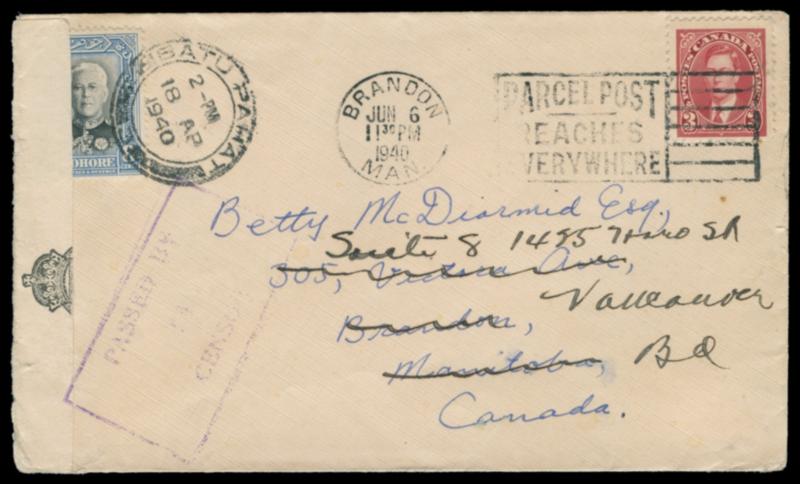 BATU PAHAT
2-PM
18 AP
1940
JOHORE
BRANDON
JUN 6
11 30 PM
1940
MAN.
PARCEL POST
REACHES
EVERYWHERE
CANADA
3 3
PASSED BY
CENSOR
Betty McDiarmid Esq.,
Suite 8 1495 Haro St
305, Victoria Ave,
Vancouver
Brandon,
Manitoba, BC
Canada.